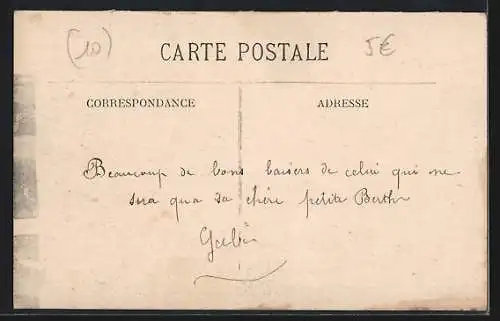 (10)
CARTE POSTALE
5€
CORRESPONDANCE
ADRESSE
Beaucoup de bons baisers de celui qui ne
sera qua sa chère petite Berthe